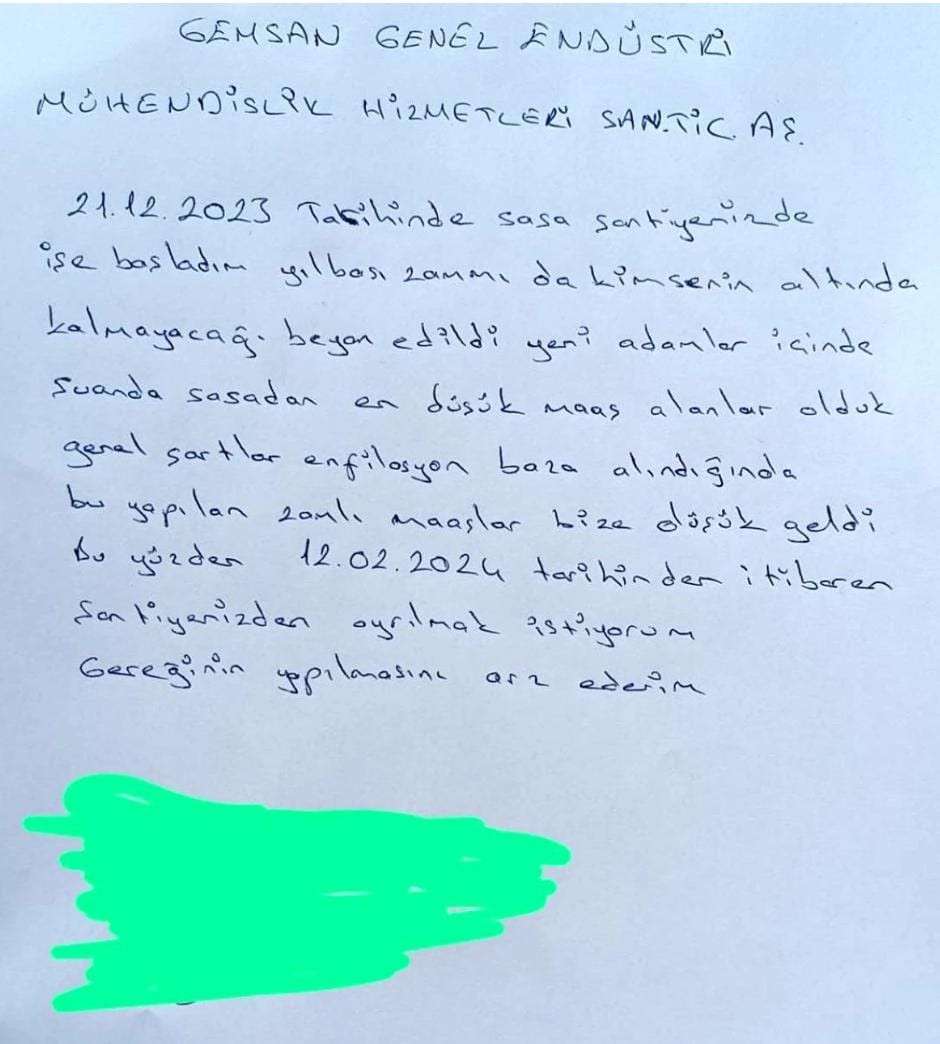 GEMSAN GENEL ENDÜSTRİ
MÜHENDİSLİK HİZMETLERİ SAN.TİC. AŞ.
21.12.2023 Tarihinde sasa şantiyenizde
işe başladım yılbası zammı da kimsenin altında
kalmayacağı beyan edildi yeni adamlar içinde
Şuanda sasadan en düşük maaş alanlar olduk
genel şartlar enfilasyon baza alındığında
bu yapılan zamlı maaşlar bize düşük geldi
Bu yüzden 12.02.2024 tarihinden itibaren
Şantiyenizden ayrılmak istiyorum
Gereğinin yapılmasını arz ederim